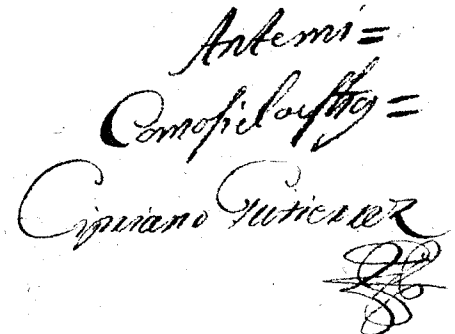 Ante mi =
Como fiel de fhõ =
Cipriano Gutierrez